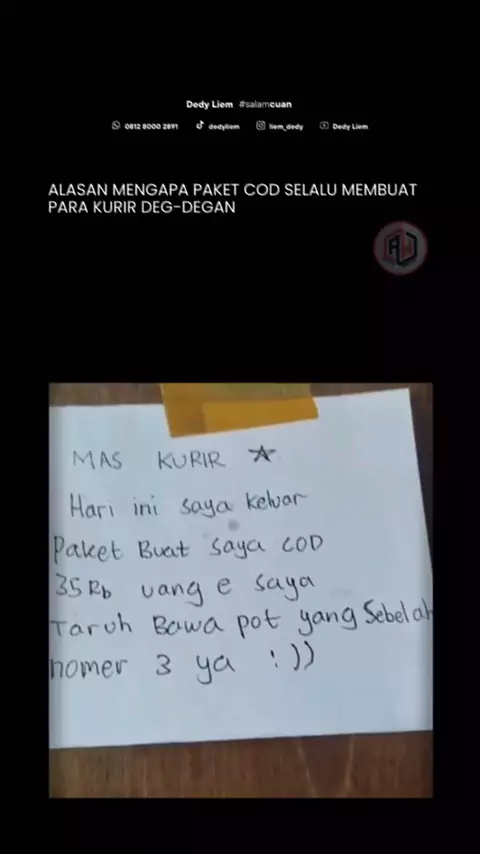 Dedy Liem #salamcuan
0812 8000 2891 dedyliem liem_dedy Dedy Liem
ALASAN MENGAPA PAKET COD SELALU MEMBUAT
PARA KURIR DEG-DEGAN
MAS KURIR
Hari ini saya keluar
Paket Buat saya COD
35 Rb uang e saya
Taruh Bawa pot yang Sebelah
nomer 3 ya :))